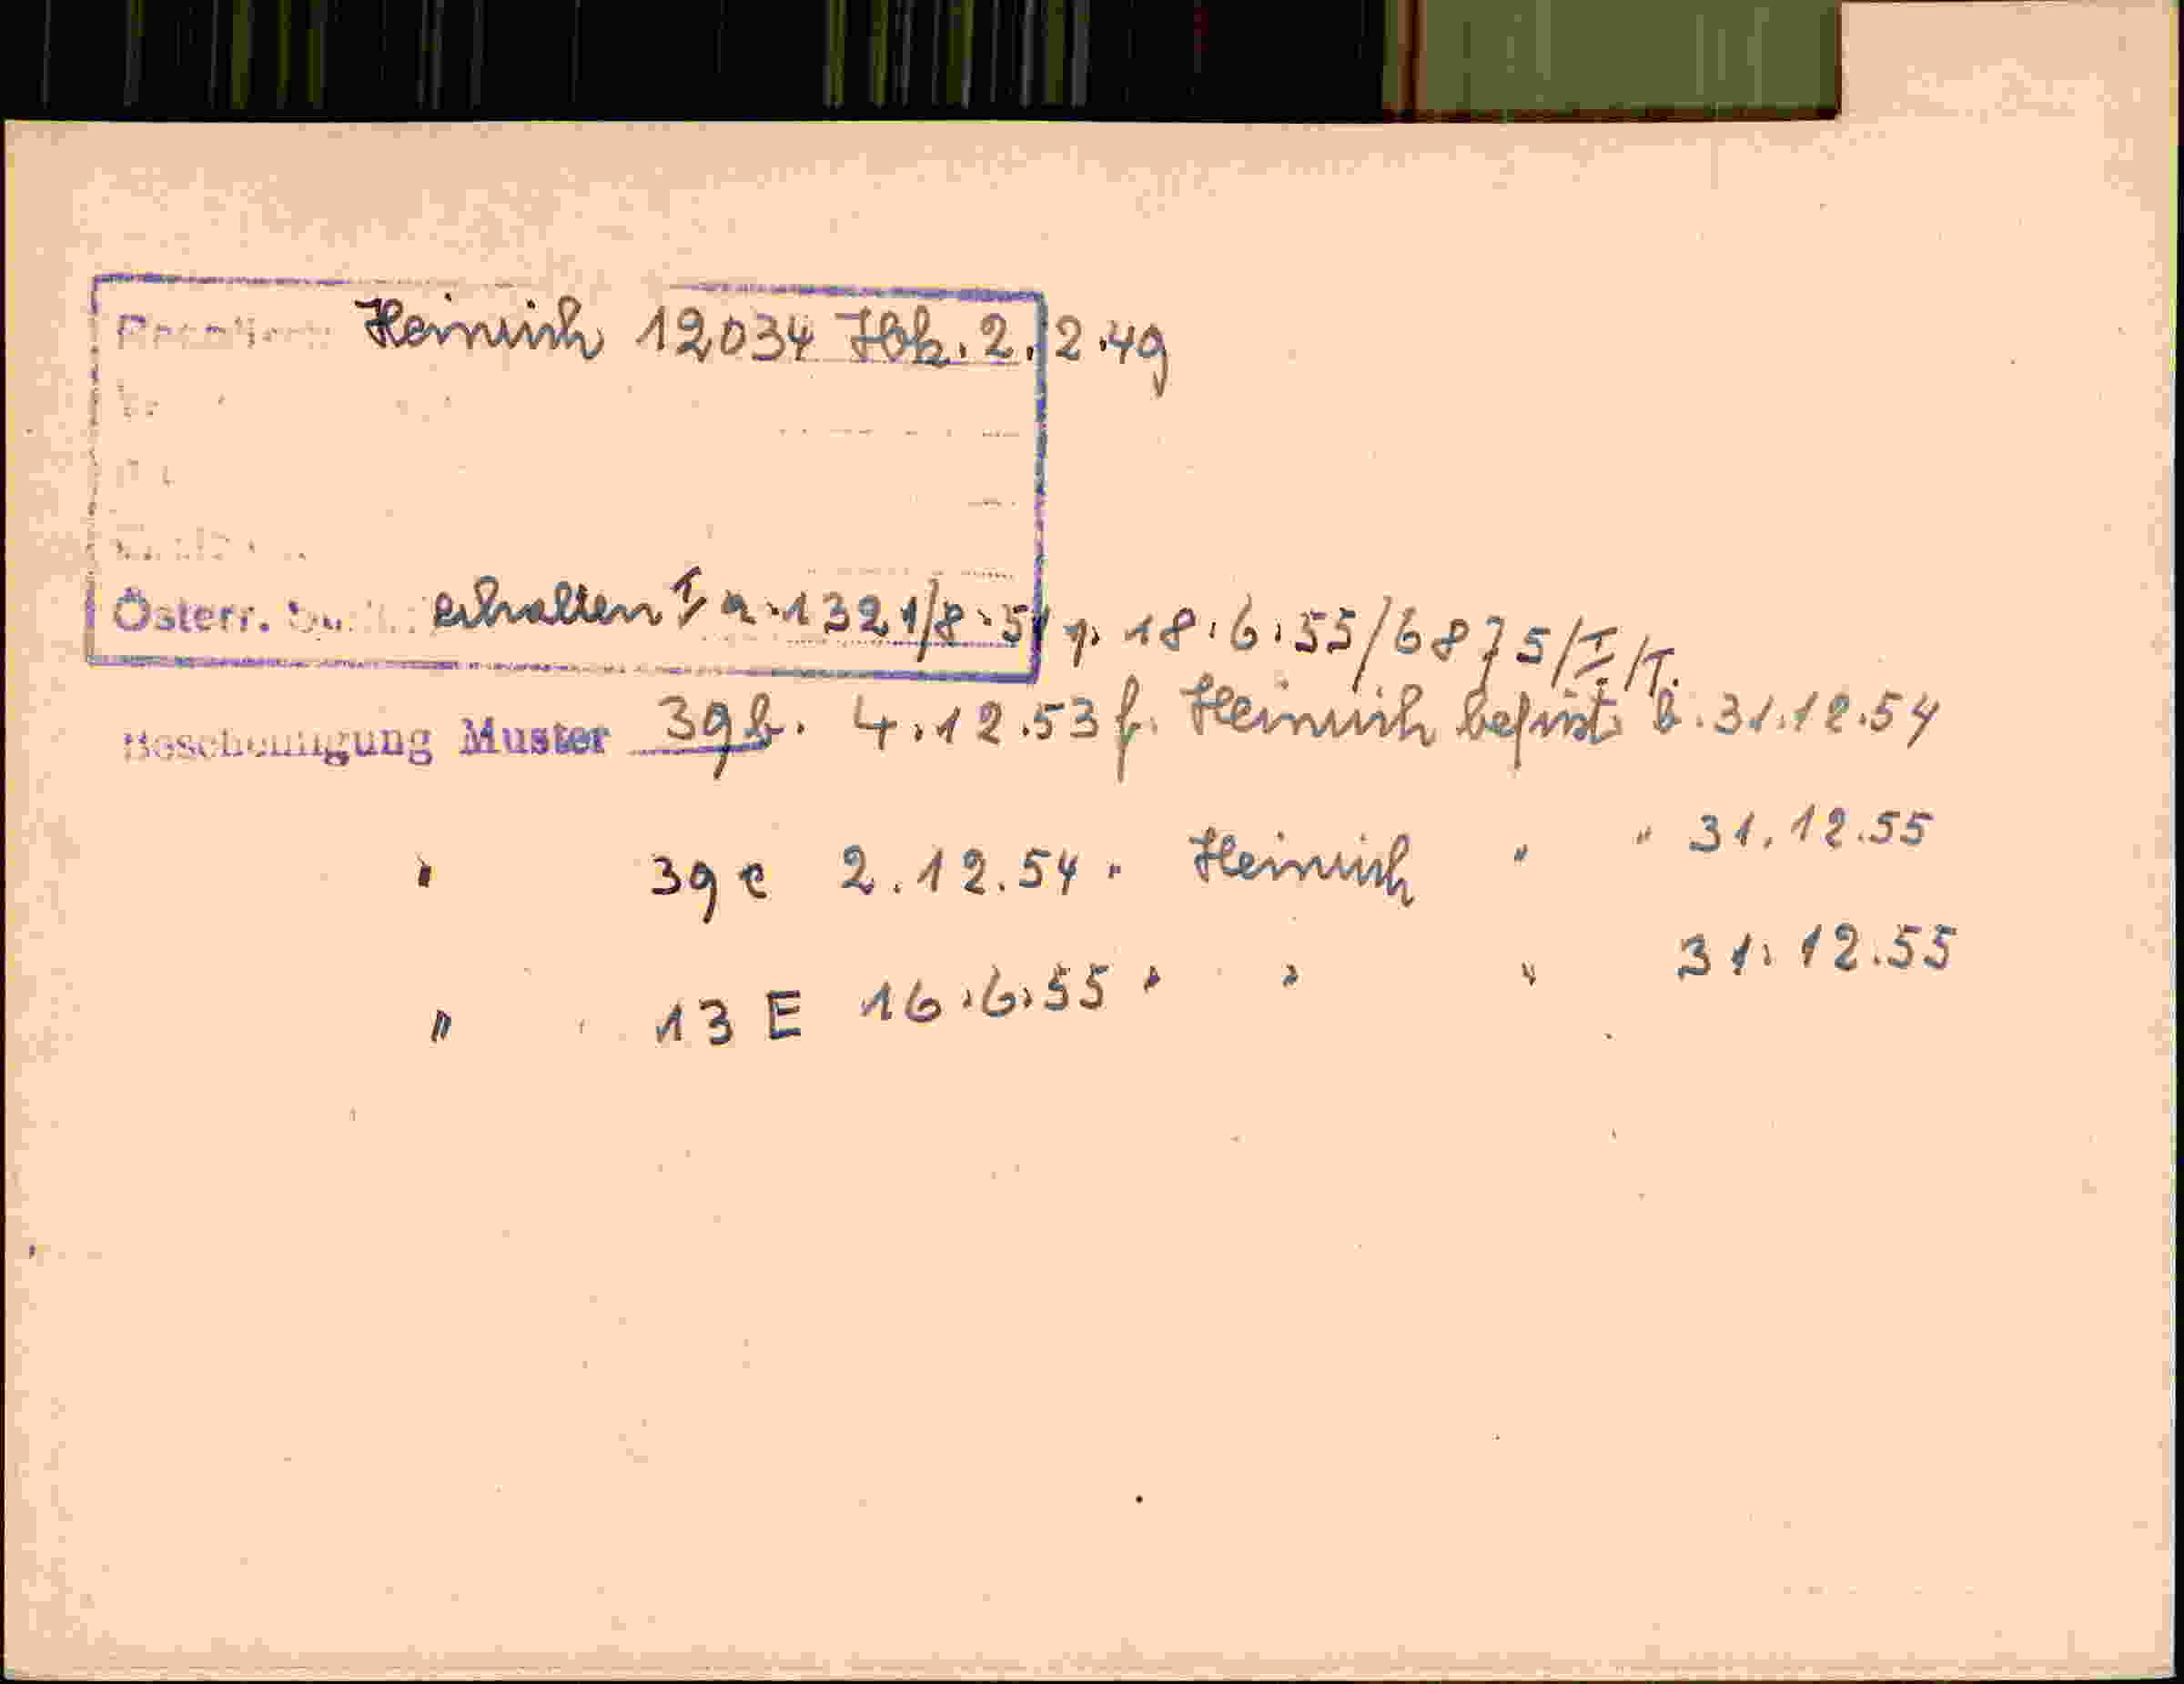 Heinrich 12034 Jbk. 2.2.49
Österr. erhalten I a. 1321/8.51 p. 18.6.55/6875/I./T.
Bescheinigung Muster 39b. 4.12.53 f. Heinrich befrist. b. 31.12.54
" 39c 2.12.54 " Heinrich " " 31.12.55
" 13 E 16.6.55 " " " 31.12.55